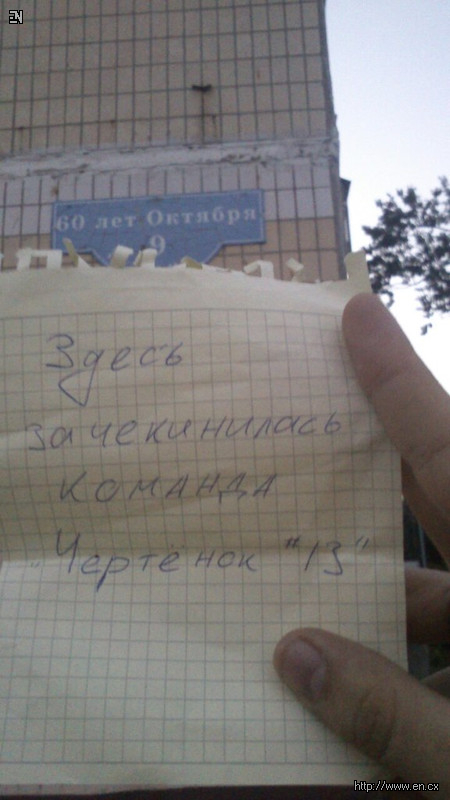 EN
60 лет Октября
9
Здесь
зачекинилась
команда
„Чертёнок "13"
http://www.en.cx